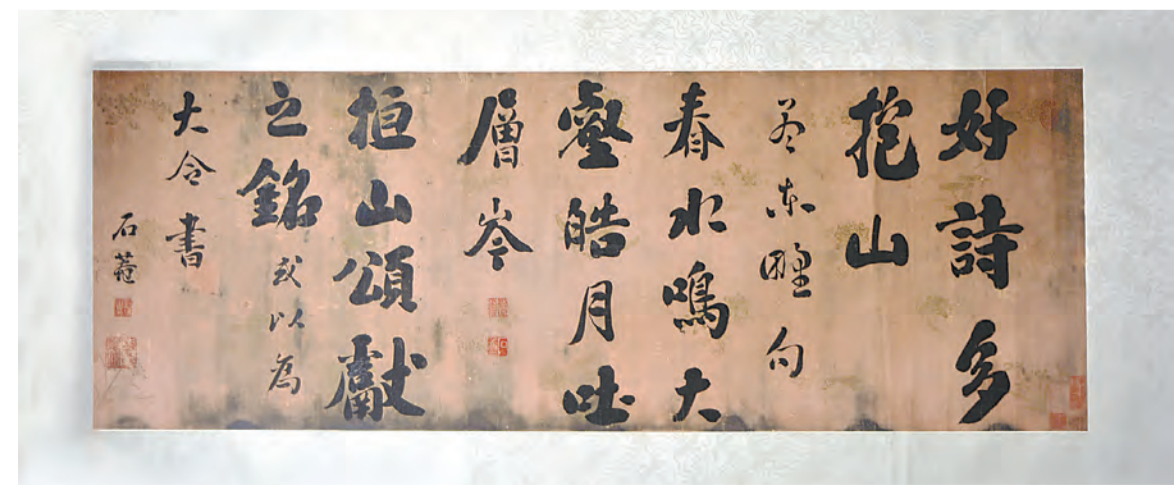 好詩多
抱山
東野句
春水鳴大
壑皓月吐
層岑
桓山頌獻
之銘或以為
大令書
石菴